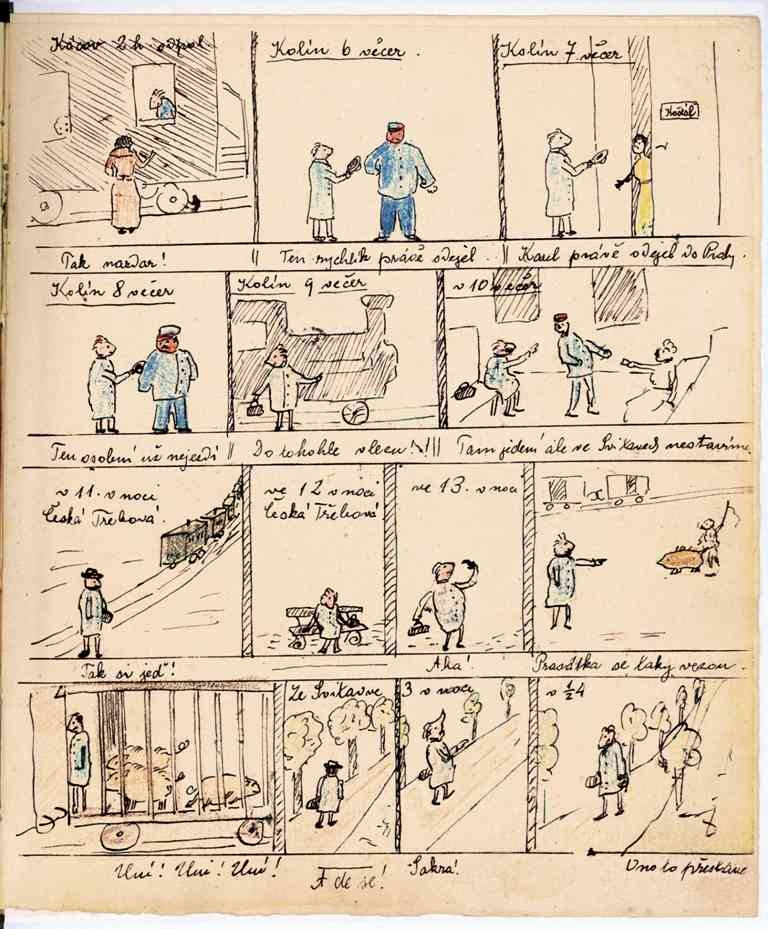 Kácov 2 h. odpol.
Kolín 6 věčer.
Kolín 7 věčer
Tak nazdar! || Ten rychlík právě odejel. || Kaul právě odejel do Prahy.
Kolín 8 věčer
Kolín 9 věčer
v 10 věčer
Ten osobní už nejezdí || Do tohohle vlezu!! || Tam jedem ale ve Svitavech nestavíme.
v 11. v noci
Česká Třebová.
ve 12 v noci
Česká Třebová
ve 13. v noci
Tak si jeď! Aha! Prasátka se taky vezou.
Ze Svitav
3 v noci
v ½4
Uuí! Uuí! Uuí! A de se! Sakra! Ono to přestane